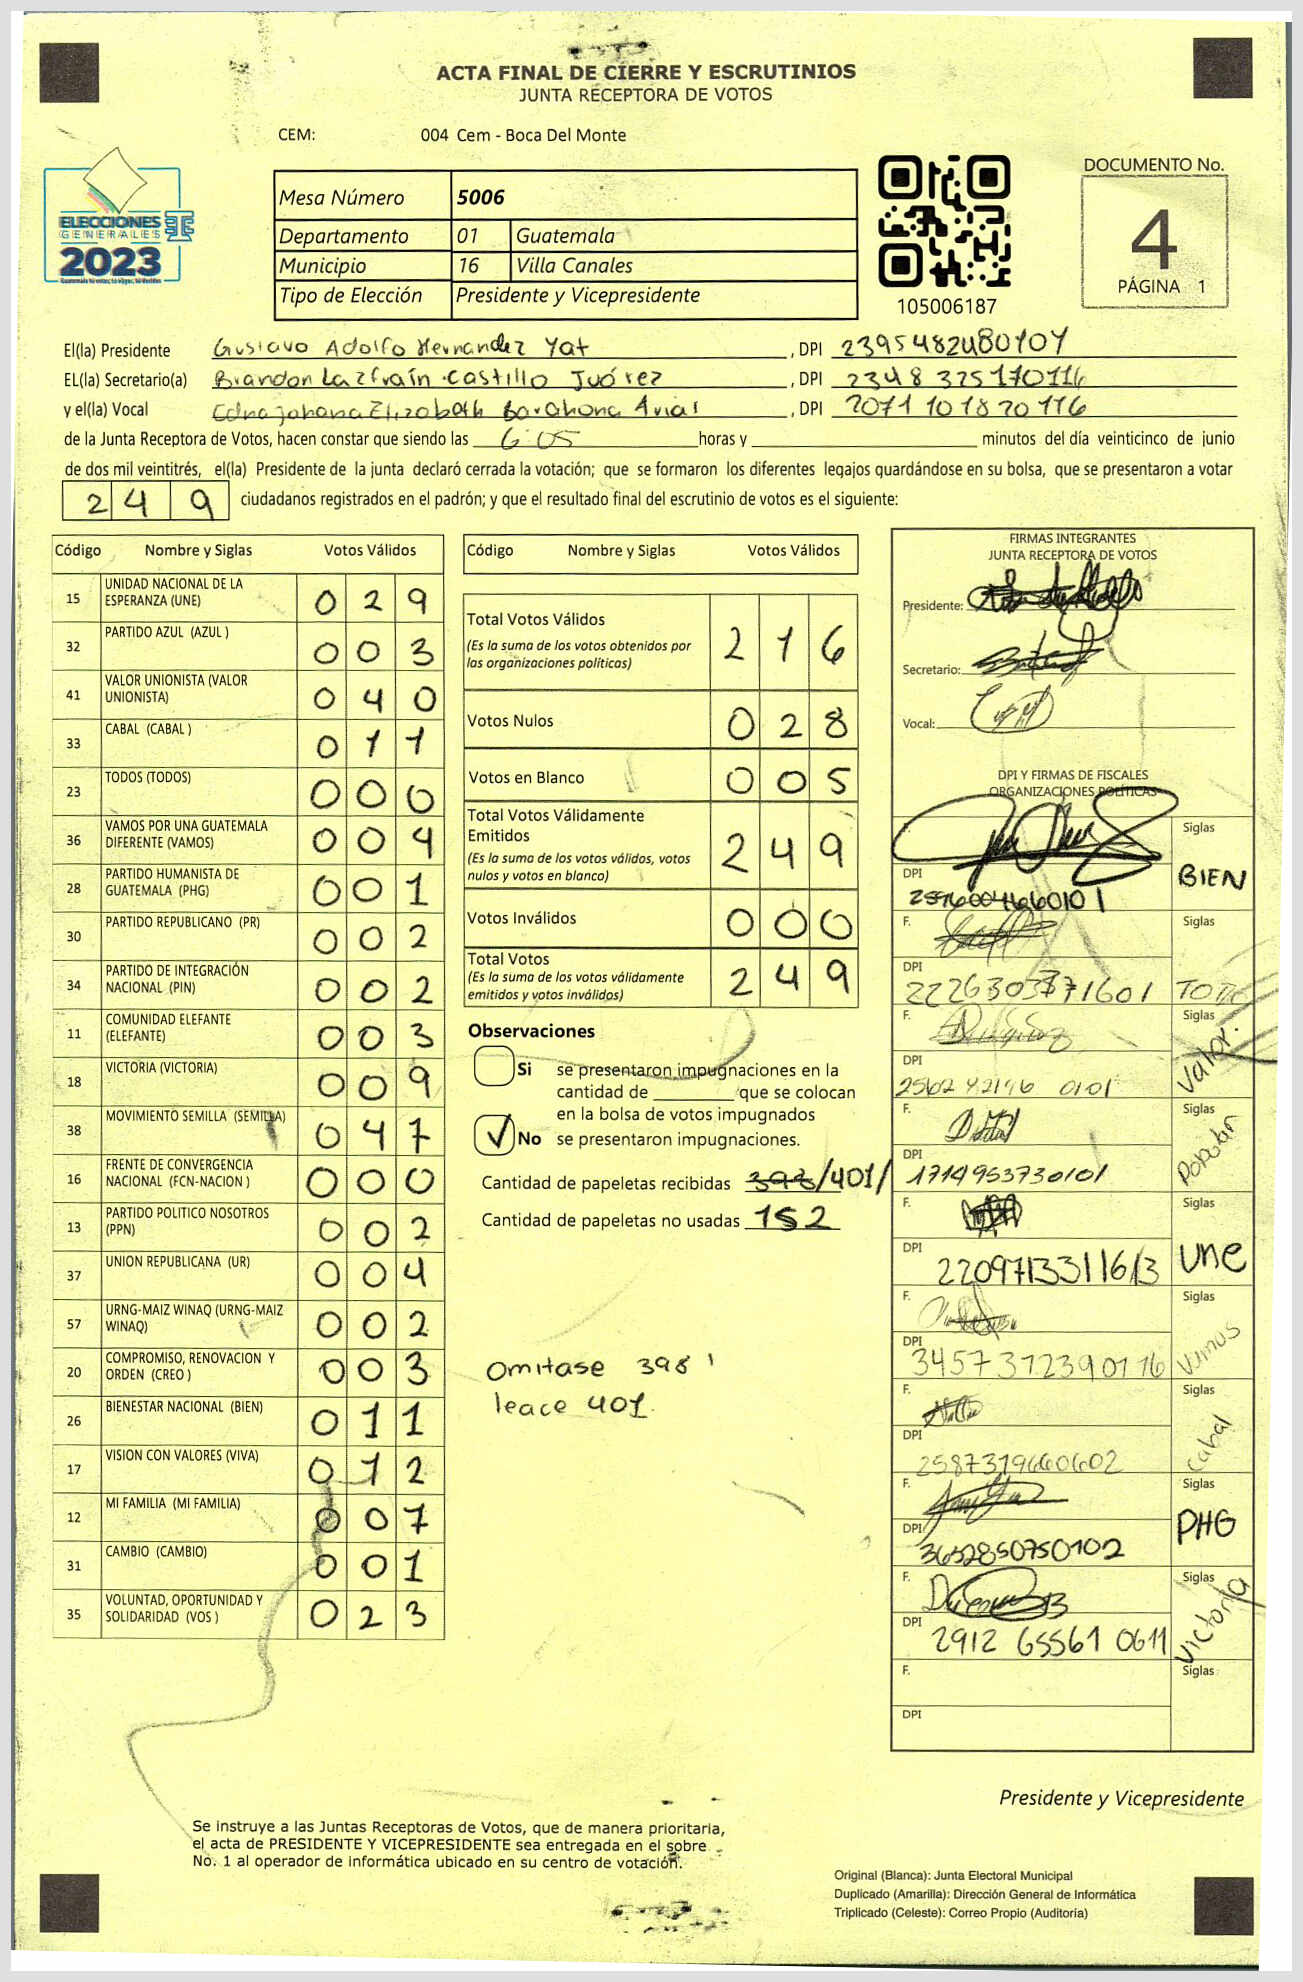 ACTA FINAL DE CIERRE Y ESCRUTINIOS
JUNTA RECEPTORA DE VOTOS
CEM: 004 Cem - Boca Del Monte
ELECCIONES
GENERALES
2023
Mesa Número 5006
Departamento 01 Guatemala
Municipio 16 Villa Canales
Tipo de Elección Presidente y Vicepresidente
105006187
DOCUMENTO No.
4
PÁGINA 1
El(la) Presidente Gustavo Adolfo Hernandez Yat, DPI 2395482480101
EL(la) Secretario(a) Brandon Castillo Juárez, DPI 2348 325170116
y el(la) Vocal Elizabeth Barahona Arias, DPI 2071 101820116
de la Junta Receptora de Votos, hacen constar que siendo las 6:05 horas y minutos del día veinticinco de junio
de dos mil veintitrés, el(la) Presidente de la junta declaró cerrada la votación; que se formaron los diferentes legajos quardándose en su bolsa, que se presentaron a votar
249 ciudadanos registrados en el padrón; y que el resultado final del escrutinio de votos es el siguiente:
Código Nombre y Siglas Votos Válidos
15 UNIDAD NACIONAL DE LA ESPERANZA (UNE) 029
32 PARTIDO AZUL (AZUL ) 003
41 VALOR UNIONISTA (VALOR UNIONISTA) 040
33 CABAL (CABAL ) 011
23 TODOS (TODOS) 000
36 VAMOS POR UNA GUATEMALA DIFERENTE (VAMOS) 004
28 PARTIDO HUMANISTA DE GUATEMALA (PHG) 001
30 PARTIDO REPUBLICANO (PR) 002
34 PARTIDO DE INTEGRACIÓN NACIONAL (PIN) 002
11 COMUNIDAD ELEFANTE (ELEFANTE) 003
18 VICTORIA (VICTORIA) 009
38 MOVIMIENTO SEMILLA (SEMILLA) 047
16 FRENTE DE CONVERGENCIA NACIONAL (FCN-NACION ) 000
13 PARTIDO POLITICO NOSOTROS (PPN) 002
37 UNION REPUBLICANA (UR) 004
57 URNG-MAIZ WINAQ (URNG-MAIZ WINAQ) 002
20 COMPROMISO, RENOVACION Y ORDEN (CREO ) 003
26 BIENESTAR NACIONAL (BIEN) 011
17 VISION CON VALORES (VIVA) 012
12 MI FAMILIA (MI FAMILIA) 007
31 CAMBIO (CAMBIO) 001
35 VOLUNTAD, OPORTUNIDAD Y SOLIDARIDAD (VOS ) 023
Código Nombre y Siglas Votos Válidos
Total Votos Válidos 216
(Es la suma de los votos obtenidos por
las organizaciones políticas)
Votos Nulos 028
Votos en Blanco 005
Total Votos Válidamente
Emitidos 249
(Es la suma de los votos válidos, votos
nulos y votos en blanco)
Votos Inválidos 000
Total Votos 249
(Es la suma de los votos válidamente
emitidos y votos inválidos)
Observaciones
Si se presentaron impugnaciones en la
cantidad de que se colocan
en la bolsa de votos impugnados
No se presentaron impugnaciones.
Cantidad de papeletas recibidas 398 /401/
Cantidad de papeletas no usadas 152
omitase 398
leace 401
FIRMAS INTEGRANTES
JUNTA RECEPTORA DE VOTOS
Presidente:
Secretario:
Vocal:
DPI Y FIRMAS DE FISCALES
ORGANIZACIONES POLÍTICAS
Siglas BIEN
DPI
F. Siglas
DPI TODO
F. Siglas Valor.
DPI
F. Siglas
DPI 1714953730101
F. Siglas une
DPI
F. Siglas Vamos
DPI 3457312390116
F. Siglas Cabal
DPI 2587319660602
F. Siglas PHG
DPI 3652850750102
F. Siglas Victoria
DPI 2912 65561 0611
F. Siglas
DPI
Presidente y Vicepresidente
Se instruye a las Juntas Receptoras de Votos, que de manera prioritaria,
el acta de PRESIDENTE Y VICEPRESIDENTE sea entregada en el sobre
No. 1 al operador de informática ubicado en su centro de votación.
Original (Blanca): Junta Electoral Municipal
Duplicado (Amarilla): Dirección General de Informática
Triplicado (Celeste): Correo Propio (Auditoría)